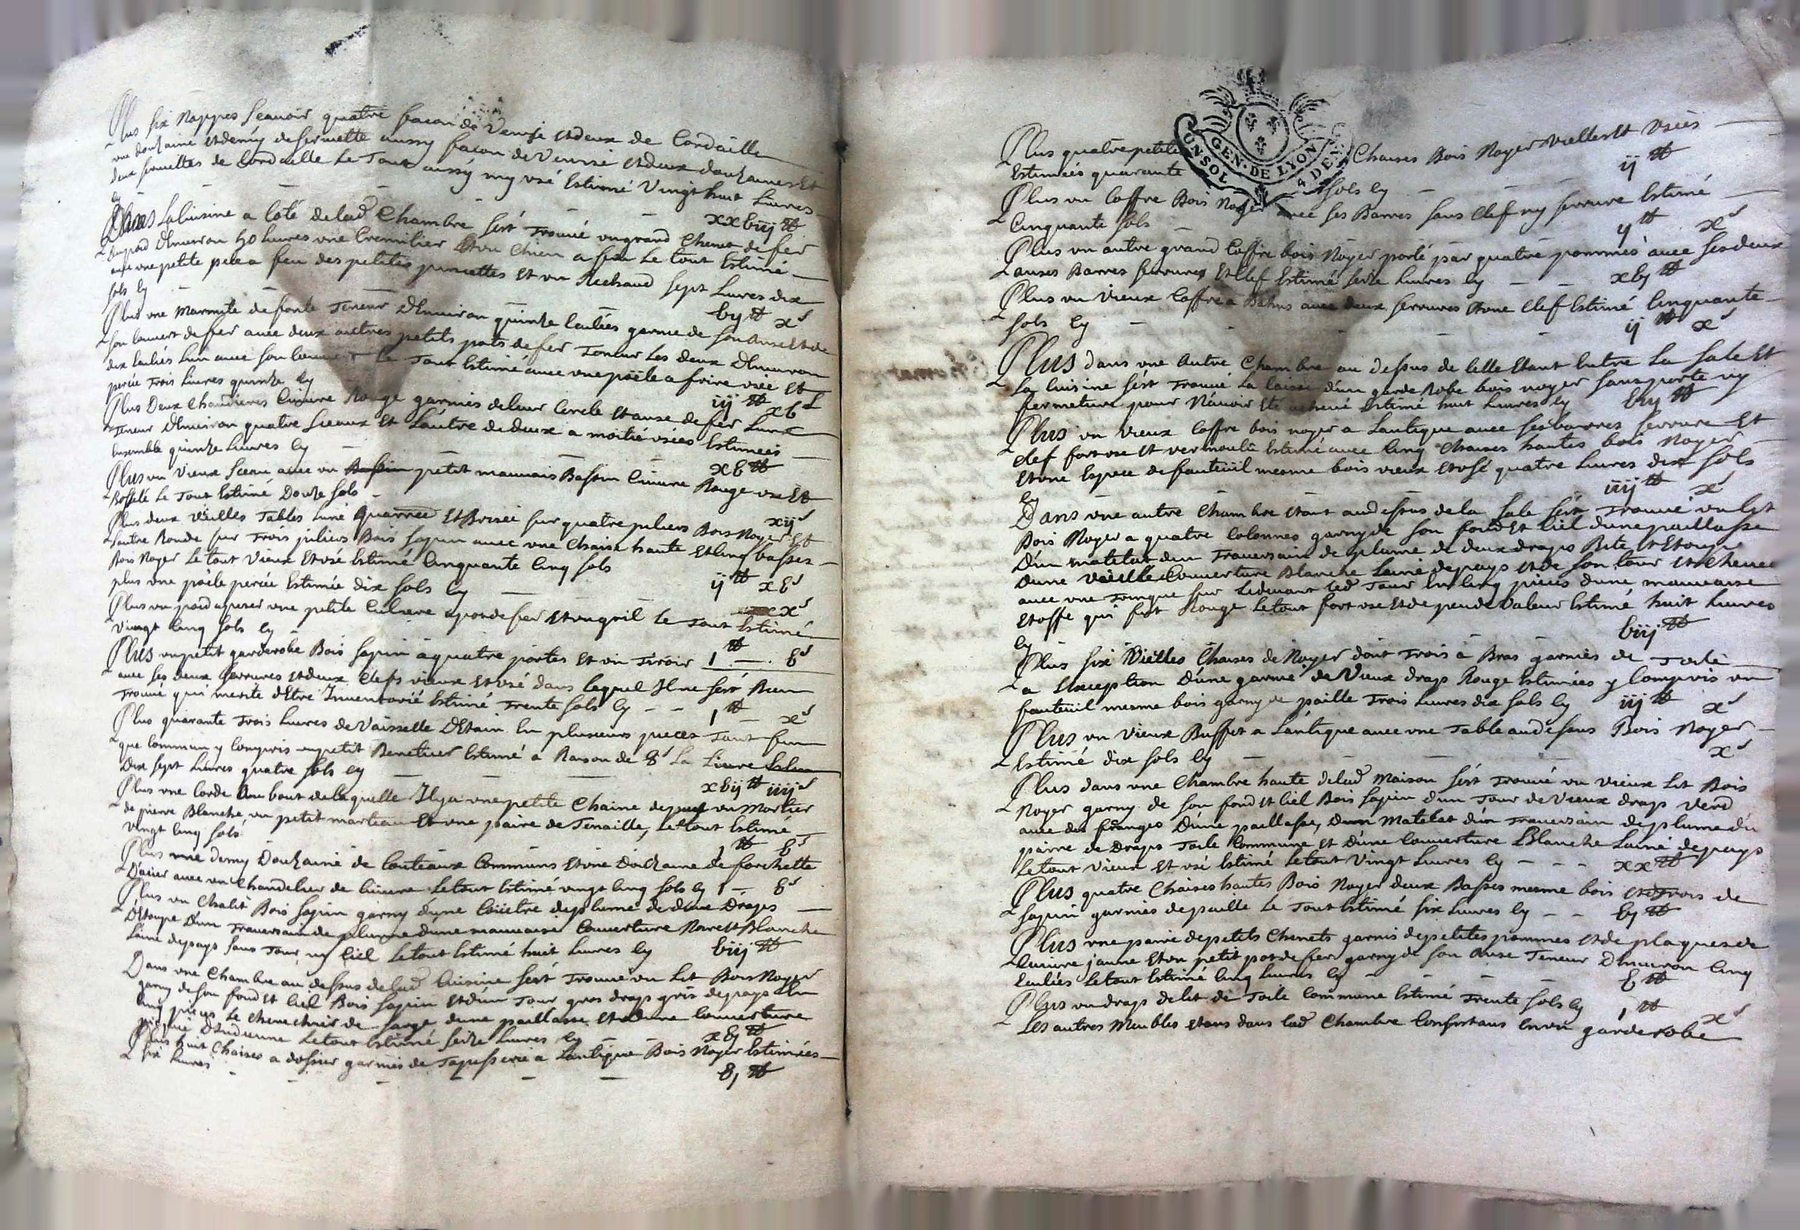 Plus six Nappes scavoir quatre facon de Venise et deux de Cordaille
une douzaine et demy de serviette aussy facon de Venise et deux douzaines et
deux serviettes de Cordaille Le Tout aussy my usé Estimé Vingt huit Livres
cy
xxbiij ₶
Dans la Cuisine a Coté de lad Chambre s'est Trouvé un grand Chenet de fer
du poid d'Environ 50 Livres une Cremilier et un Chien a feu Le tout Estimé
avec une petite pele a feu des petites pincettes Et un Rechaud Sept Livres dix
sols cy
bij ₶ x s
Plus une Marmite de fonte Teneur d'Environ quinze Ecuelées garnie de son Anse et de
son Couvert de fer avec deux autres petits pots de fer Teneur Les deux d'Environ
dix Eculées L'un avec son Couvert Le Tout Estimé avec une poële a frire usée Et
percée Trois Livres quinze cy
iij ₶ xb s
Plus Deux Chaudieres Cuivre Rouge garnies de leur Cercle et anse de fer L'une
Teneur d'Environ quatre Sceaux Et L'autre de deux a moitié usées Estimées
Ensemble quinze Livres cy
xb ₶
Plus un Vieux Sceau avec un petit mauvais Bassin Cuivre Rouge usé Et
Bosselé Le Tout Estimé Douze sols
xij s
Plus deux Vieilles Tables L'une quarrée Et Brisée sur quatre piliers Bois Noyer Et
L'autre Ronde sur Trois piliers Bois sapin avec une Chaise haute Et cinq basses
Bois Noyer Le tout Vieux Et usé Estimé Cinquante Cinq sols
ij ₶ xb s
plus une poële percée Estimée dix sols cy
x s
Plus un poid a peser une petite Cuilliere a pot de fer Et un gril Le Tout Estimé
Vingt Cinq sols cy
1 ₶ b s
Plus un petit garderobe Bois sapin a quatre portes Et un Tiroir
avec ses deux serrures et deux Clefs vieux Et usé dans lequel Il ne s'est Rien
Trouvé qui merite d'Etre Inventorié Estimé Trente sols cy
1 ₶ x s
Plus quarante Trois Livres de Vaisselle d'Etain En plusieurs pieces Tant fin
que Commun y Compris un petit Benetier Estimé a Raison de 8 s La Livre
Dix sept Livres quatre sols cy
xbij ₶ iiij s
Plus une Corde Au bout de laquelle Il y a une petite Chaine de puy un Mortier
de pierre Blanche, un petit marteau Et une paire de Tenaille, Le tout Estimé
vingt Cinq sols
1 ₶ b s
Plus une demy Douzaine de Couteaux Communs Et une Douzaine de forchette
D'acier avec un Chandelier de Cuivre Le tout Estimé vingt Cinq sols cy 1 b s
Plus un Chalit Bois sapin garny d'une Coüetre de plume de deux Draps
D'Etoupe D'un Traversain de plume d'une mauvaise Couverture Noire et Blanche
Laine de pays sans Tour ny Ciel Le tout Estimé huit Livres cy
biij ₶
Dans une Chambre au dessus de lad Cuisine s'est Trouvé un Lit Bois Noyer
garny de son fond et Ciel Bois sapin Et d'un Tour gros draps gris de pays En
Cinq pieces Le Chevet de Sarge, d'une paillasse Et d'une Couverture
piquée d'Indienne Le tout Estimé seize Livres cy
xbj ₶
Plus huit Chaises a dossier garnies de Tapisserie a L'antique Bois Noyer Estimées
six Livres
bj ₶
GEN. DE LYON
UN SOL 4 DEN
Plus quatre petites Chaises Bois Noyer Vieilles Et Usées
Estimées quarante sols cy
ij ₶
Plus un Coffre Bois Noyer avec ses Barres sans Clef ny serrure Estimé
Cinquante sols
ij ₶ x s
Plus un autre grand Coffre bois Noyer porté par quatre pommes avec ses deux
anses Barres serrures Et Clef Estimé seize Livres cy
xbj ₶
Plus un Vieux Coffre a Bahus avec deux serrures Et une Clef Estimé Cinquante
sols cy
ij ₶ x s
Plus dans une Autre Chambre au dessus de Celle Etant Entre La Sale Et
La Cuisine s'est Trouvé La Caisse d'un garde Robe bois noyer sans porte ny
fermeture pour N'avoir Eté achevé Estimé huit Livres cy
biij ₶
Plus un Vieux Coffre bois noyer a L'antique avec ses barres serrure Et
Clef fort usé Et vermoulu Estimé avec Cinq Chaises hautes bois Noyer
Et une Espece de fauteuil mesme bois vieux Et usé quatre Livres dix sols
cy
iiij ₶ x s
Dans une autre Chambre Etant au dessus de la Sale s'est Trouvé un Lit
Bois Noyer a quatre Colonnes garny de son fond Et Ciel d'une paillasse
D'un matelat d'un Traversain de plume de deux draps Rite et Etoupe
D'une Vieille Couverture Blanche Laine de pays et de son Tour
avec une frange sur Le devant led Tour En Cinq pieces d'une mauvaise
Etoffe qui fut Rouge Le tout fort usé Et de peu de Valeur Estimé huit Livres
cy
biij ₶
Plus six Vieilles Chaises de Noyer dont Trois a Bras garnies de Toile
a L'exception D'une garnie de Vieux drap Rouge Estimées y Compris un
fauteuil mesme bois garny de paille Trois Livres dix sols cy
iij ₶ x s
Plus un Vieux Buffet a L'antique avec une Table au dessus Bois Noyer
Estimé dix sols cy
x s
Plus dans une Chambre haute de lad Maison s'est Trouvé un Vieux Lit Bois
Noyer garny de son fond Et Ciel Bois sapin d'un Tour de Vieux draps Verd
avec des franges D'une paillasse, D'un Matelat d'un Traversain de plume d'u
paire de Draps Toile Commune Et D'une Couverture Blanche Laine de pays
Le tout Vieux Et usé Estimé Le tout Vingt Livres cy
xx ₶
Plus quatre Chaises hautes Bois Noyer deux Basses mesme bois et Trois de
Sapin garnies de paille Le Tout Estimé six Livres cy
bj ₶
Plus une paire de petits Chenets garnis de petites pommes Et de plaques de
Cuivre jaune Et un petit pot de fer garny de son Anse Teneur D'Environ Cinq
Eculées Le tout Estimé Cinq Livres cy
b ₶
Plus un draps de lit de Toile Commune Estimé Trente sols cy
1 ₶ x s
Les autres Meubles Etans dans lad Chambre Consistans En un garderobe